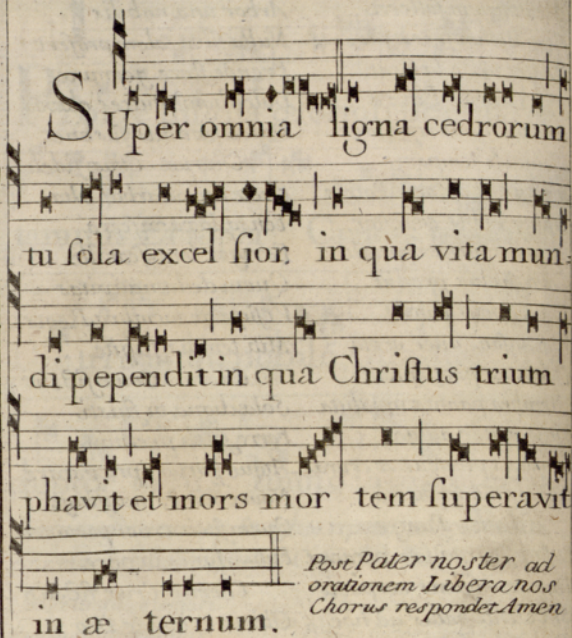 SUper omnia ligna cedrorum
tu ſola excel ſior. in qùa vita mun-
di pependit in qua Chriſtus trium
phavit et mors mor tem ſuperavit
in æ ternum.
Post Pater noster ad
orationem Libera nos
Chorus respondet Amen